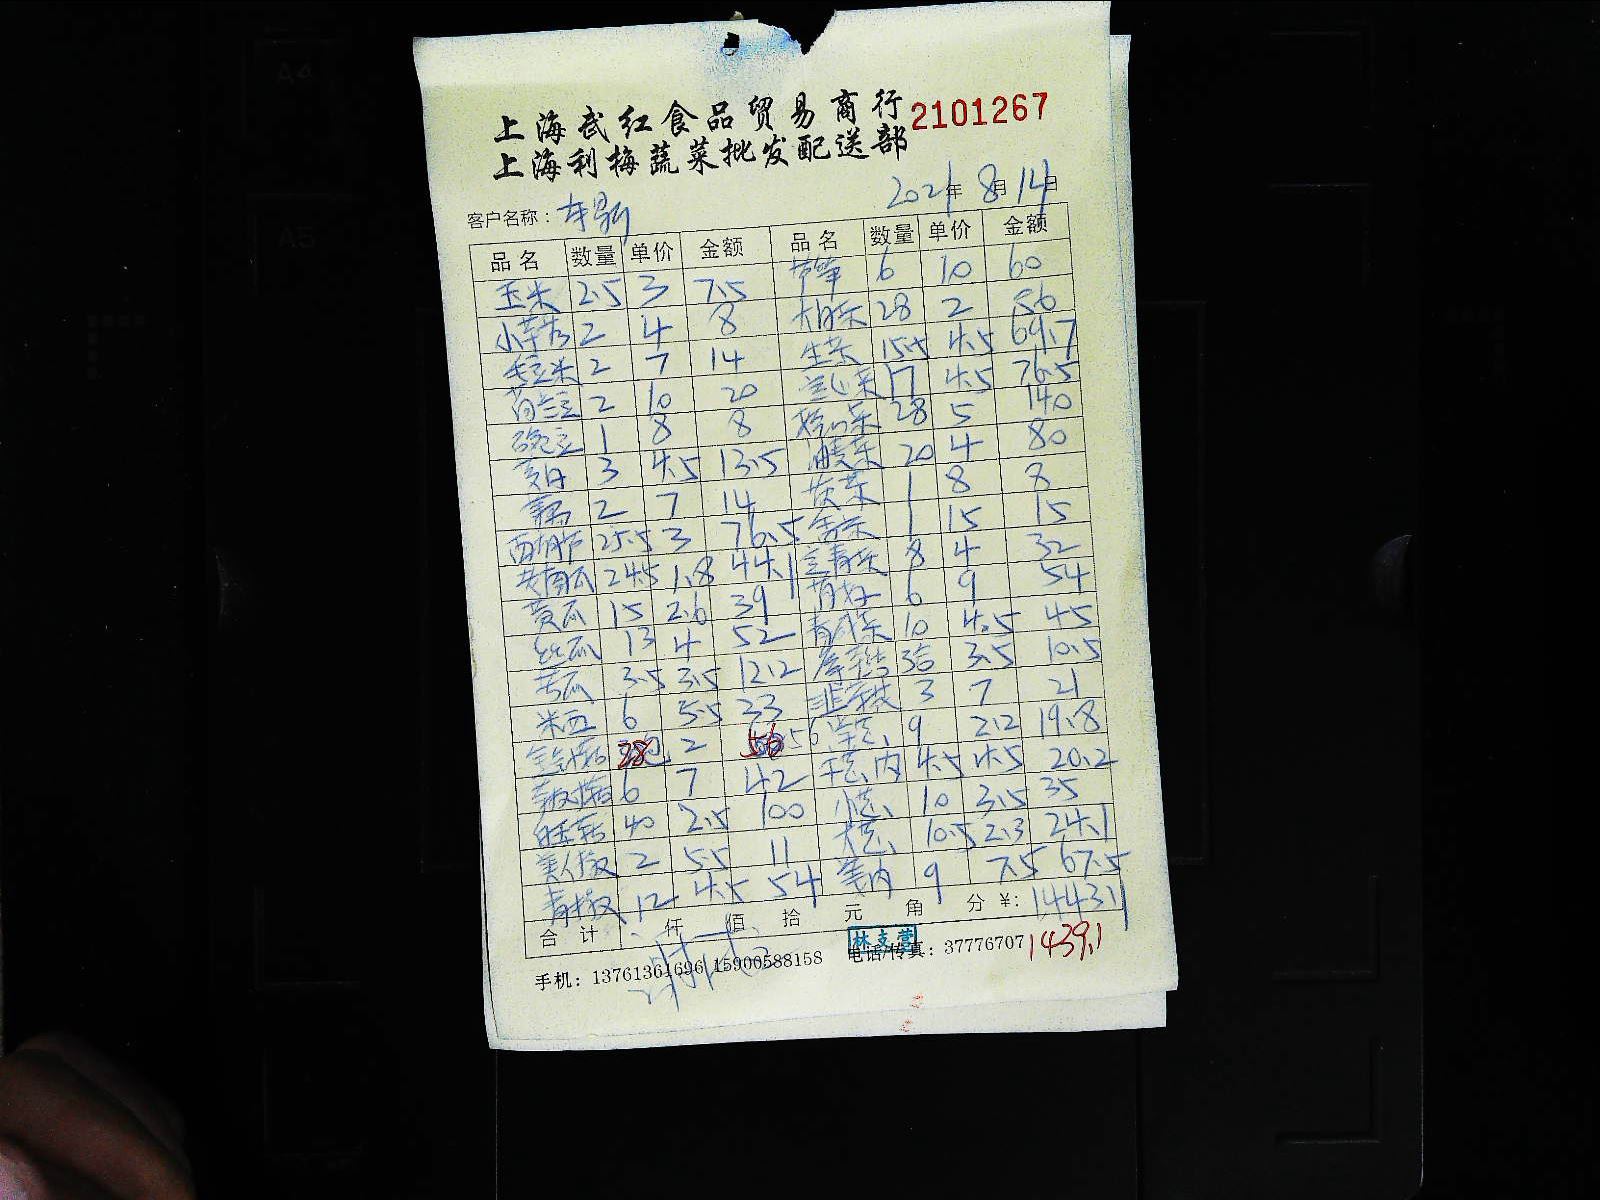 上海武红食品贸易商行 2101267
上海利梅蔬菜批发配送部
客户名称： 2021年 8月 14日
品名 数量 单价 金额 品名 数量 单价 金额
玉米 2.5 3 7.5 芦笋 6 10 60
2 4 8 大白菜 28 2 56
毛豆米 2 7 14 生菜 15.5 4.5 69.7
荷兰豆 2 10 20 空心菜 17 4.5 76.5
豌豆 1 8 8 28 5 140
3 4.5 13.5 油麦菜 20 4 80
2 7 14 1 8 8
西葫芦 25.5 3 76.5 1 15 15
老南瓜 24.5 1.8 44.1 8 4 32
黄瓜 15 2.6 39 6 9 54
丝瓜 13 4 52 10 4.5 45
苦瓜 3.5 3.5 12.2 3.5 10.5
米西 6 5.5 33 3 7 21
28 2 56 56 洋葱 9 2.2 19.8
6 7 42 4.5 4.5 20.2
40 2.5 100 小葱 10 3.5 35
美人椒 2 5.5 11 大葱 10.5 2.3 24.1
青椒 12 4.5 54 姜肉 9 7.5 67.5
合计 仟 佰 拾 元 角 分 ¥: 1443.1
林支营
手机：13761361696 15900588158 电话/传真：37776707 1439.1